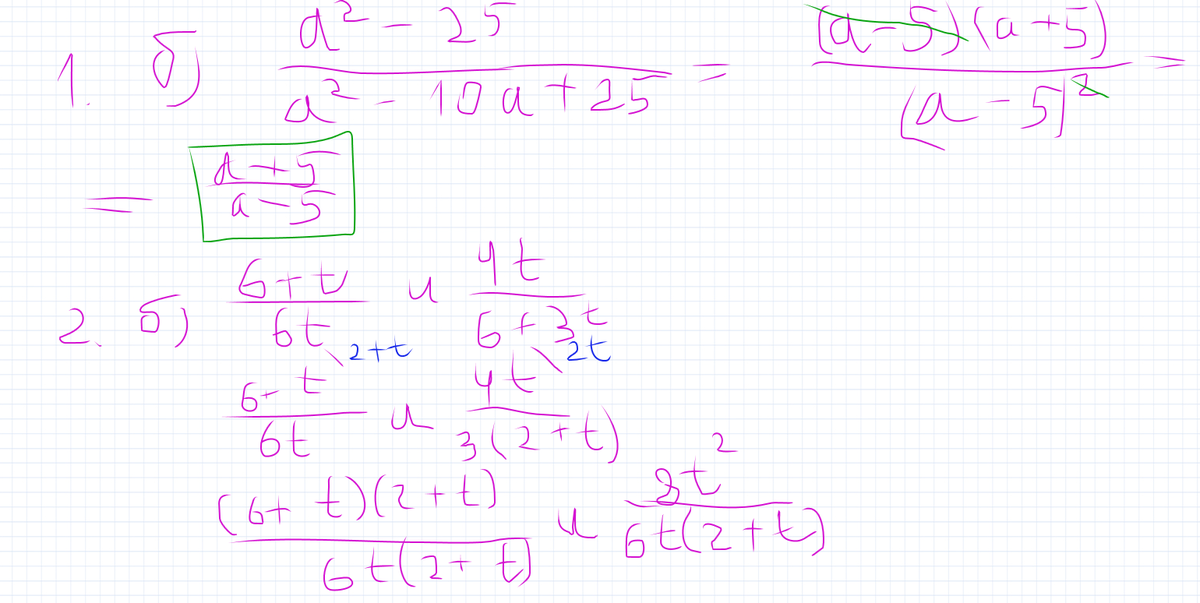 1. б) (a² - 25)/(a² - 10a + 25) = ((a - 5)(a + 5))/(a - 5)² =
= (a + 5)/(a - 5)
2. б) (6 + t)/(6t) и (4t)/(6 + 3t)
2+t 2t
(6 + t)/(6t) и (4t)/(3(2 + t))
((6 + t)(2 + t))/(6t(2 + t)) и (8t²)/(6t(2 + t))